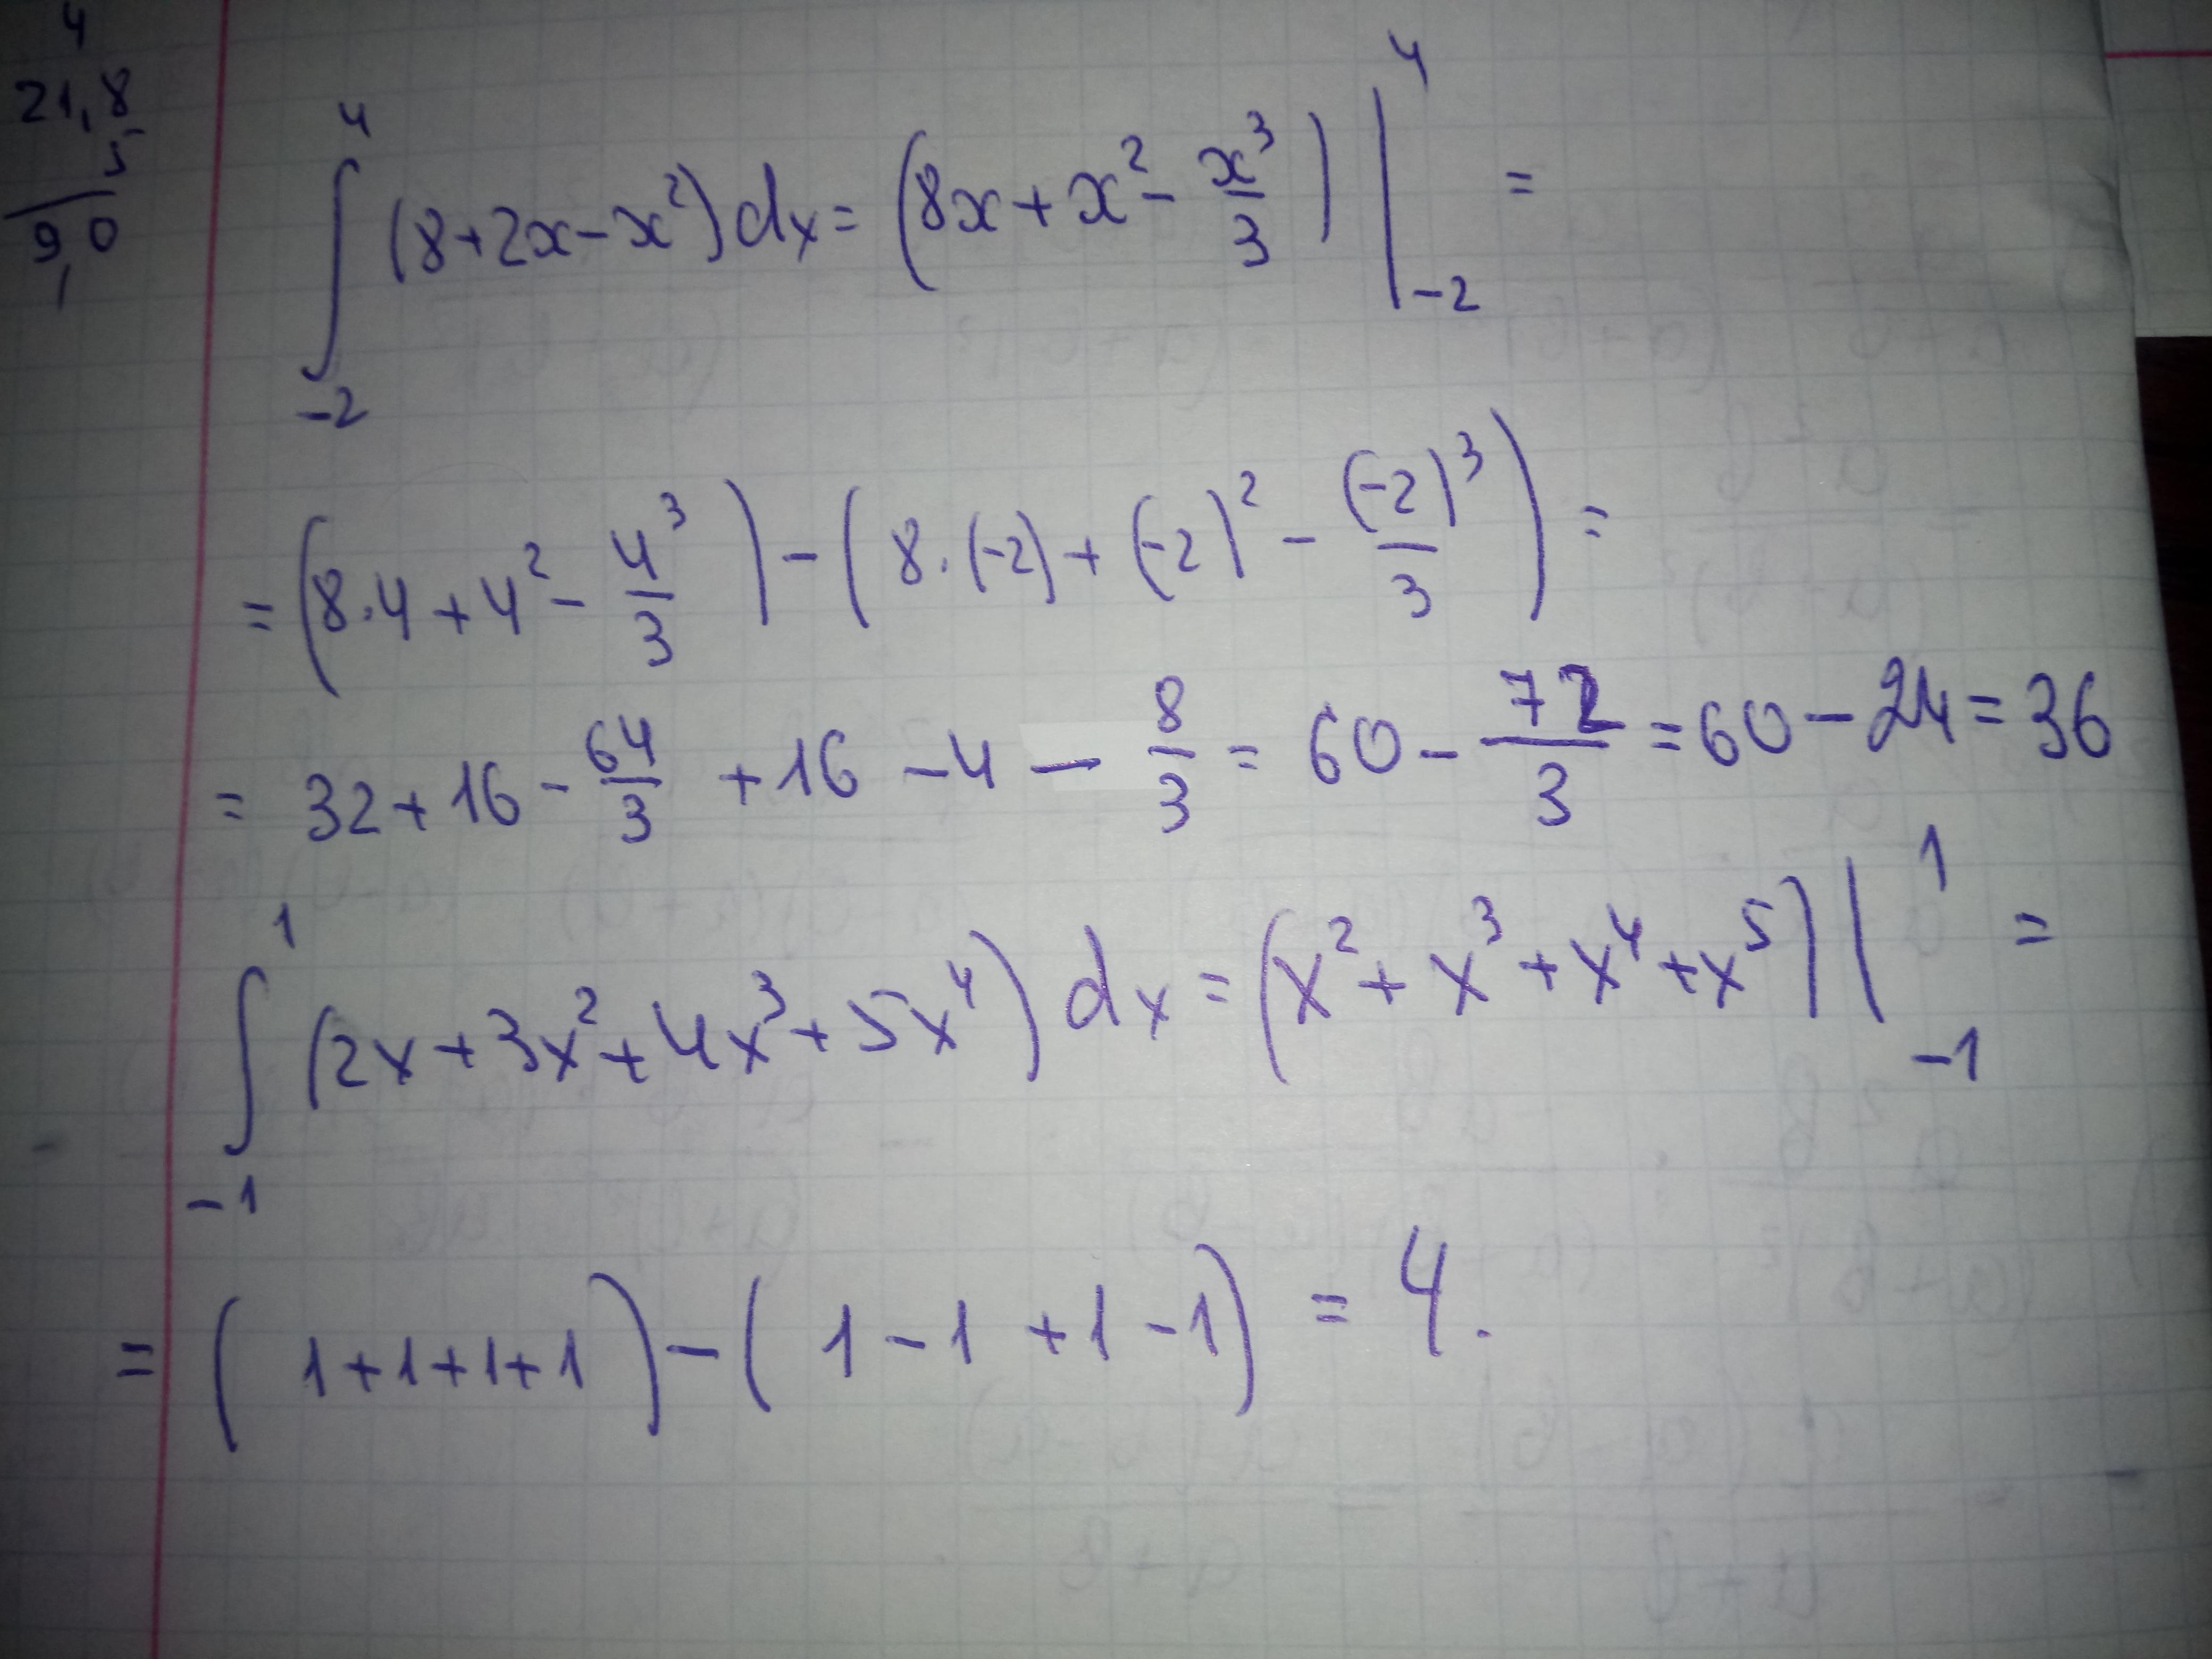 4
21,8
5
9,0
∫₋₂⁴ (8+2x-x²)dx = (8x+x²-x³/3)|₋₂⁴ =
= (8·4+4²-4³/3) - (8·(-2)+(-2)²-(-2)³/3) =
= 32+16-64/3 +16 -4 - 8/3 = 60 - 72/3 = 60-24=36
∫₋₁¹ (2x+3x²+4x³+5x⁴)dx = (x²+x³+x⁴+x⁵)|₋₁¹ =
= (1+1+1+1) - (1-1+1-1) = 4.